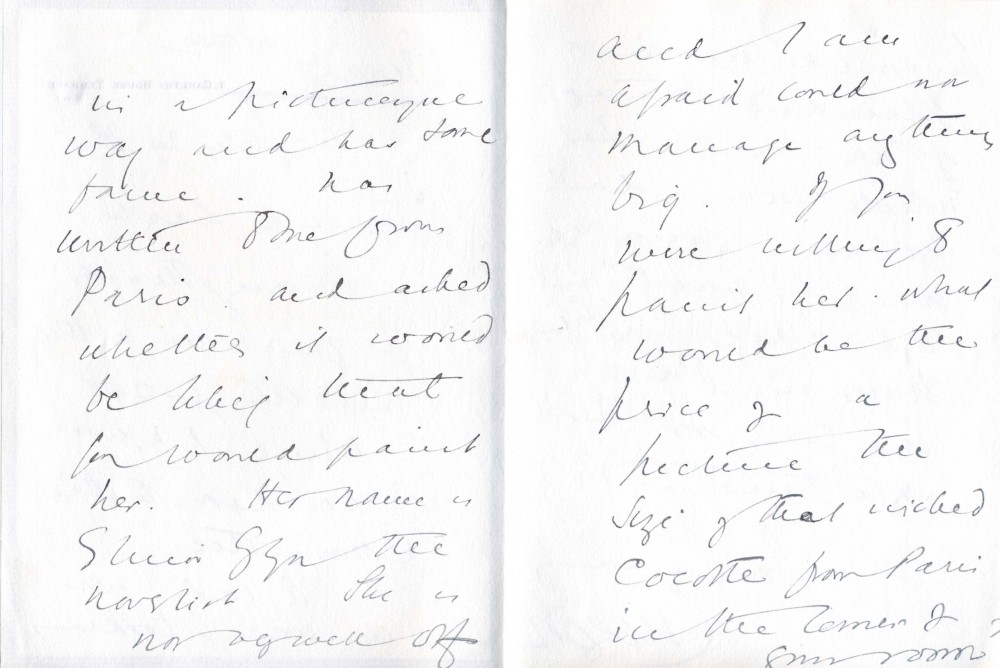 in a picturesque
way and has some
fame. has
written to me from
Paris. and asked
whether it would
be likely that
you would paint
her. Her name is
Elinor Glyn the
novelist She is
not very well off
and I am
afraid could not
manage anything
big. If you
were willing to
paint her. what
would be the
price of a
picture the
size of that wicked
Cocotte from Paris
in the corner of
your room